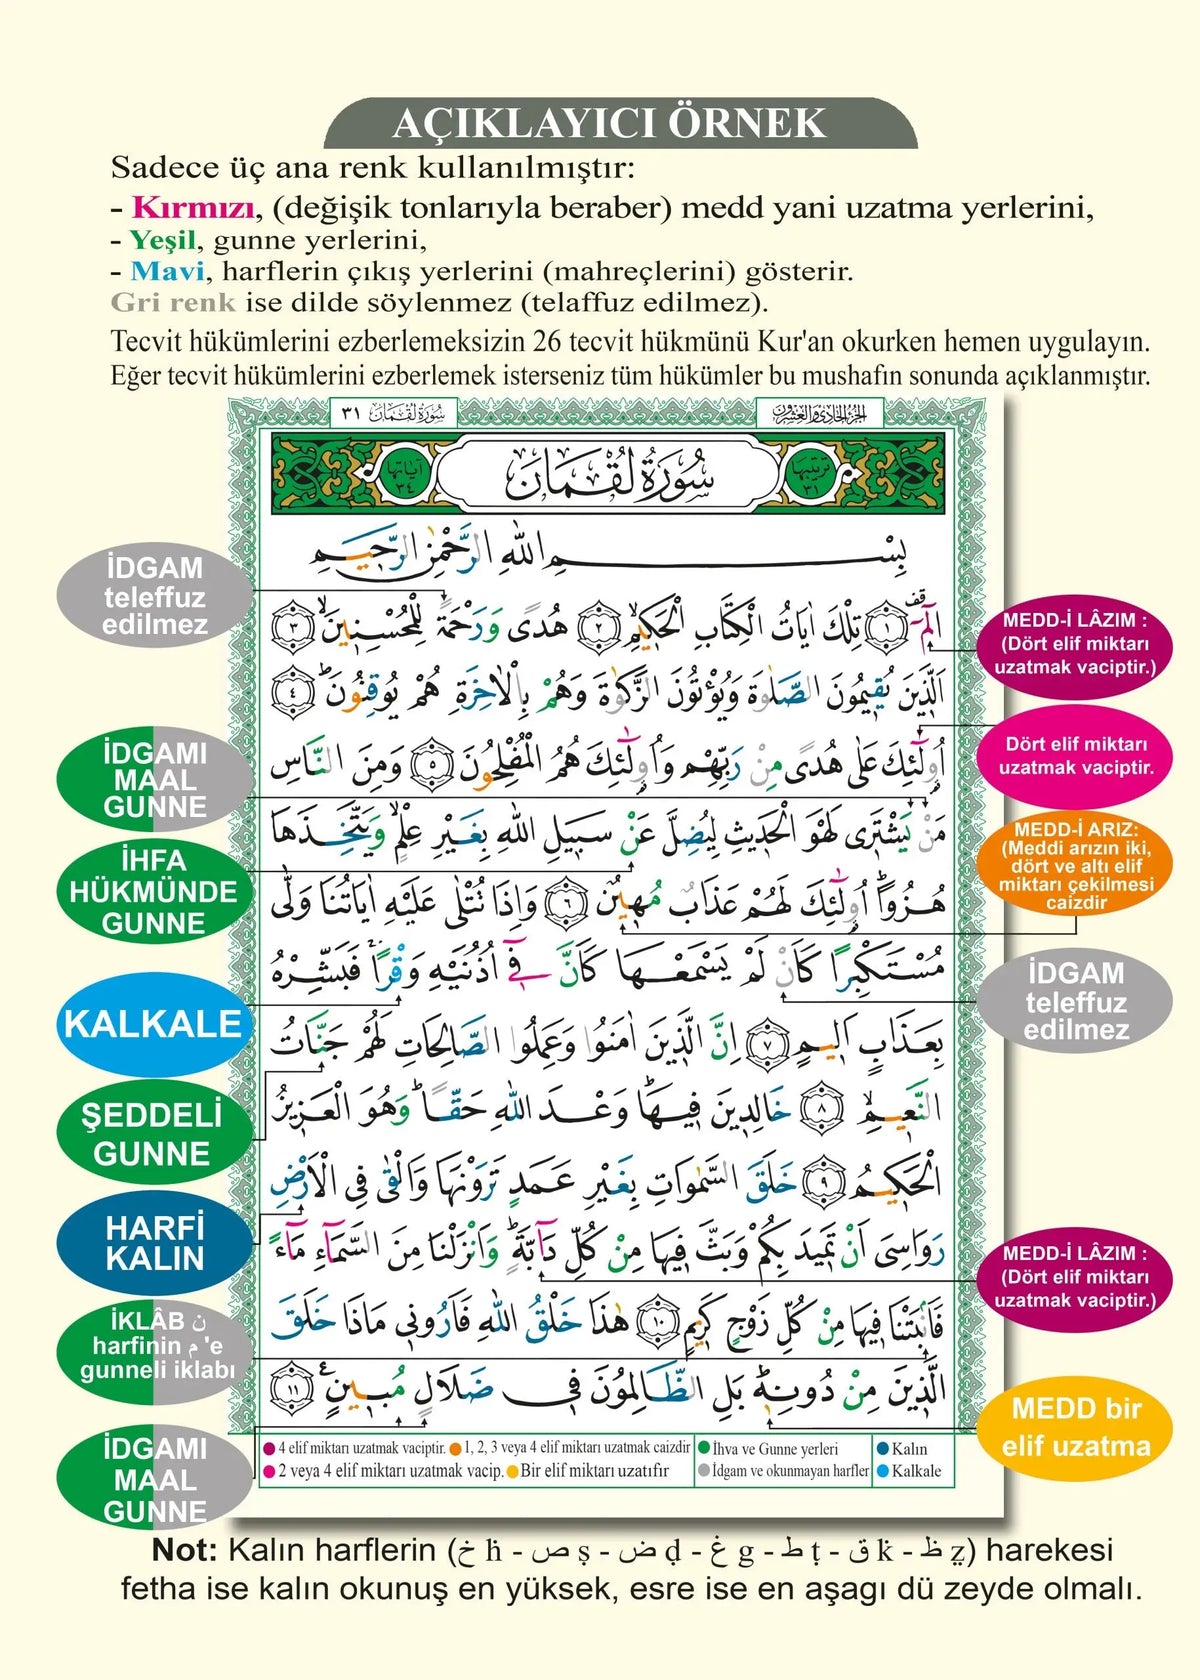 AÇIKLAYICI ÖRNEK
Sadece üç ana renk kullanılmıştır:
- Kırmızı, (değişik tonlarıyla beraber) medd yani uzatma yerlerini,
- Yeşil, gunne yerlerini,
- Mavi, harflerin çıkış yerlerini (mahreçlerini) gösterir.
Gri renk ise dilde söylenmez (telaffuz edilmez).
Tecvit hükümlerini ezberlemeksizin 26 tecvit hükmünü Kur'an okurken hemen uygulayın.
Eğer tecvit hükümlerini ezberlemek isterseniz tüm hükümler bu mushafın sonunda açıklanmıştır.
الجزء الحادي والعشرون
سورة لقمان ٣١
ترتيبها
٣١
سُورَةُ لُقْمَانَ
آياتها
٣٤
بِسْمِ اللهِ الرَّحْمٰنِ الرَّحِيمِ
الٓمٓ ﴿١﴾ تِلْكَ اٰيَاتُ الْكِتَابِ الْحَكِيمِ ﴿٢﴾ هُدًى وَرَحْمَةً لِلْمُحْسِنِينَ ﴿٣﴾
اَلَّذِينَ يُقِيمُونَ الصَّلٰوةَ وَيُؤْتُونَ الزَّكٰوةَ وَهُمْ بِالْاٰخِرَةِ هُمْ يُوقِنُونَ ﴿٤﴾
اُولٰٓئِكَ عَلٰى هُدًى مِنْ رَبِّهِمْ وَاُولٰٓئِكَ هُمُ الْمُفْلِحُونَ ﴿٥﴾ وَمِنَ النَّاسِ
مَنْ يَشْتَرِى لَهْوَ الْحَدِيثِ لِيُضِلَّ عَنْ سَبِيلِ اللهِ بِغَيْرِ عِلْمٍ وَيَتَّخِذَهَا
هُزُوًا اُولٰٓئِكَ لَهُمْ عَذَابٌ مُهِينٌ ﴿٦﴾ وَاِذَا تُتْلٰى عَلَيْهِ اٰيَاتُنَا وَلّٰى
مُسْتَكْبِرًا كَاَنْ لَمْ يَسْمَعْهَا كَاَنَّ فِىٓ اُذُنَيْهِ وَقْرًا فَبَشِّرْهُ
بِعَذَابٍ اَلِيمٍ ﴿٧﴾ اِنَّ الَّذِينَ اٰمَنُوا وَعَمِلُوا الصَّالِحَاتِ لَهُمْ جَنَّاتُ
النَّعِيمِ ﴿٨﴾ خَالِدِينَ فِيهَا وَعْدَ اللهِ حَقًّا وَهُوَ الْعَزِيزُ
الْحَكِيمُ ﴿٩﴾ خَلَقَ السَّمٰوَاتِ بِغَيْرِ عَمَدٍ تَرَوْنَهَا وَاَلْقٰى فِى الْاَرْضِ
رَوَاسِىَ اَنْ تَمِيدَ بِكُمْ وَبَثَّ فِيهَا مِنْ كُلِّ دَابَّةٍ وَاَنْزَلْنَا مِنَ السَّمَٓاءِ مَٓاءً
فَاَنْبَتْنَا فِيهَا مِنْ كُلِّ زَوْجٍ كَرِيمٍ ﴿١٠﴾ هٰذَا خَلْقُ اللهِ فَاَرُونِى مَاذَا خَلَقَ
الَّذِينَ مِنْ دُونِهِ بَلِ الظَّالِمُونَ فِى ضَلَالٍ مُبِينٍ ﴿١١﴾
İDGAM
teleffuz
edilmez
İDGAMI
MAAL
GUNNE
İHFA
HÜKMÜNDE
GUNNE
KALKALE
ŞEDDELİ
GUNNE
HARFİ
KALIN
İKLÂB ن
harfinin م 'e
gunneli iklabı
İDGAMI
MAAL
GUNNE
MEDD-İ LÂZIM :
(Dört elif miktarı
uzatmak vaciptir.)
Dört elif miktarı
uzatmak vaciptir.
MEDD-İ ARIZ:
(Meddi arızın iki,
dört ve altı elif
miktarı çekilmesi
caizdir
İDGAM
teleffuz
edilmez
MEDD-İ LÂZIM :
(Dört elif miktarı
uzatmak vaciptir.)
MEDD bir
elif uzatma
4 elif miktarı uzatmak vaciptir. 1, 2, 3 veya 4 elif miktarı uzatmak caizdir İhva ve Gunne yerleri Kalın
2 veya 4 elif miktarı uzatmak vacip. Bir elif miktarı uzatıfır İdgam ve okunmayan harfler Kalkale
Not: Kalın harflerin (خ ḣ - ص ṣ - ض ḍ - غ g - ط ṭ - ق ḱ - ظ ẓ) harekesi
fetha ise kalın okunuş en yüksek, esre ise en aşagı dü zeyde olmalı.